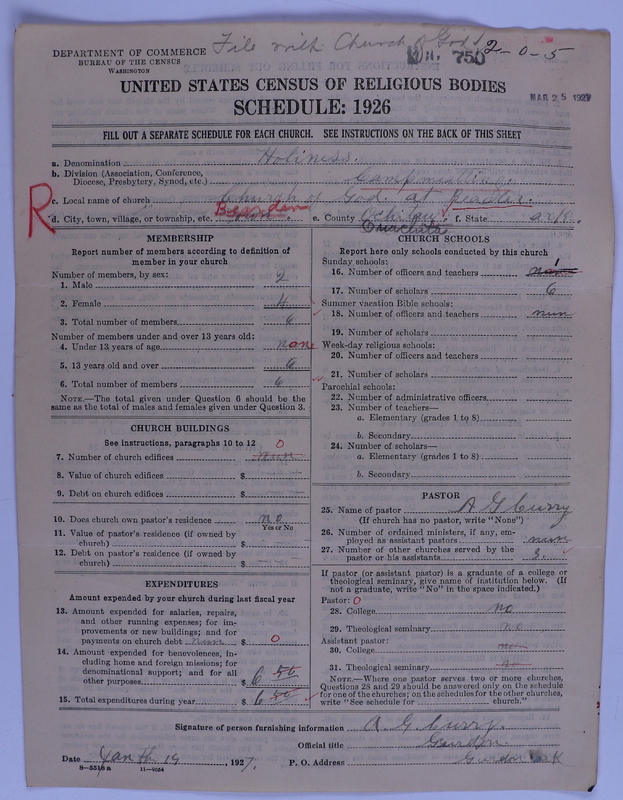 File with Church of God 12-0-5
DEPARTMENT OF COMMERCE
BUREAU OF THE CENSUS
WASHINGTON
750
UNITED STATES CENSUS OF RELIGIOUS BODIES
MAR 25 1927
SCHEDULE: 1926
FILL OUT A SEPARATE SCHEDULE FOR EACH CHURCH. SEE INSTRUCTIONS ON THE BACK OF THIS SHEET
a. Denomination Holiness.
b. Division (Association, Conference,
Diocese, Presbytery, Synod, etc.)
R
c. Local name of church Church of God at
d. City, town, village, or township, etc. e. County Ouachita f. State ark.
MEMBERSHIP
Report number of members according to definition of
member in your church
Number of members, by sex:
1. Male 2
2. Female 4
3. Total number of members 6
Number of members under and over 13 years old:
4. Under 13 years of age none
5. 13 years old and over 6
6. Total number of members 6
NOTE.—The total given under Question 6 should be
same as the total of males and females given under Question 3.
CHURCH BUILDINGS
See instructions, paragraphs 10 to 12 0
7. Number of church edifices nun
8. Value of church edifices $
9. Debt on church edifices $
10. Does church own pastor's residence no
Yes or No
11. Value of pastor's residence (if owned by
church) $
12. Debt on pastor's residence (if owned by
church) $
EXPENDITURES
Amount expended by your church during last fiscal year
13. Amount expended for salaries, repairs,
and other running expenses; for im-
provements or new buildings; and for
payments on church debt nun $ 0
14. Amount expended for benevolences, in-
cluding home and foreign missions; for
denominational support; and for all
other purposes $ 6 50
15. Total expenditures during year $ 6 50
CHURCH SCHOOLS
Report here only schools conducted by this church
Sunday schools:
16. Number of officers and teachers 1
17. Number of scholars 6
Summer vacation Bible schools:
18. Number of officers and teachers nun
19. Number of scholars
Week-day religious schools:
20. Number of officers and teachers
21. Number of scholars
Parochial schools:
22. Number of administrative officers
23. Number of teachers—
a. Elementary (grades 1 to 8)
b. Secondary
24. Number of scholars—
a. Elementary (grades 1 to 8)
b. Secondary
PASTOR
25. Name of pastor A G Curry
(If church has no pastor, write "None")
26. Number of ordained ministers, if any, em-
ployed as assistant pastors nun
27. Number of other churches served by the
pastor or his assistants 3
If pastor (or assistant pastor) is a graduate of a college or
theological seminary, give name of institution below. (If
not a graduate, write "No" in the space indicated.)
Pastor: 0
28. College no
29. Theological seminary no
Assistant pastor:
30. College no
31. Theological seminary no
NOTE.—Where one pastor serves two or more churches,
Questions 28 and 29 should be answered only on the schedule
for one of the churches; on the schedules for the other churches,
write "See schedule for church."
Signature of person furnishing information A. G. Curry
Official title Gurdon
Date Jan th 19, 1927. P. O. Address Gurdon Ark
8—5518a 11—9054